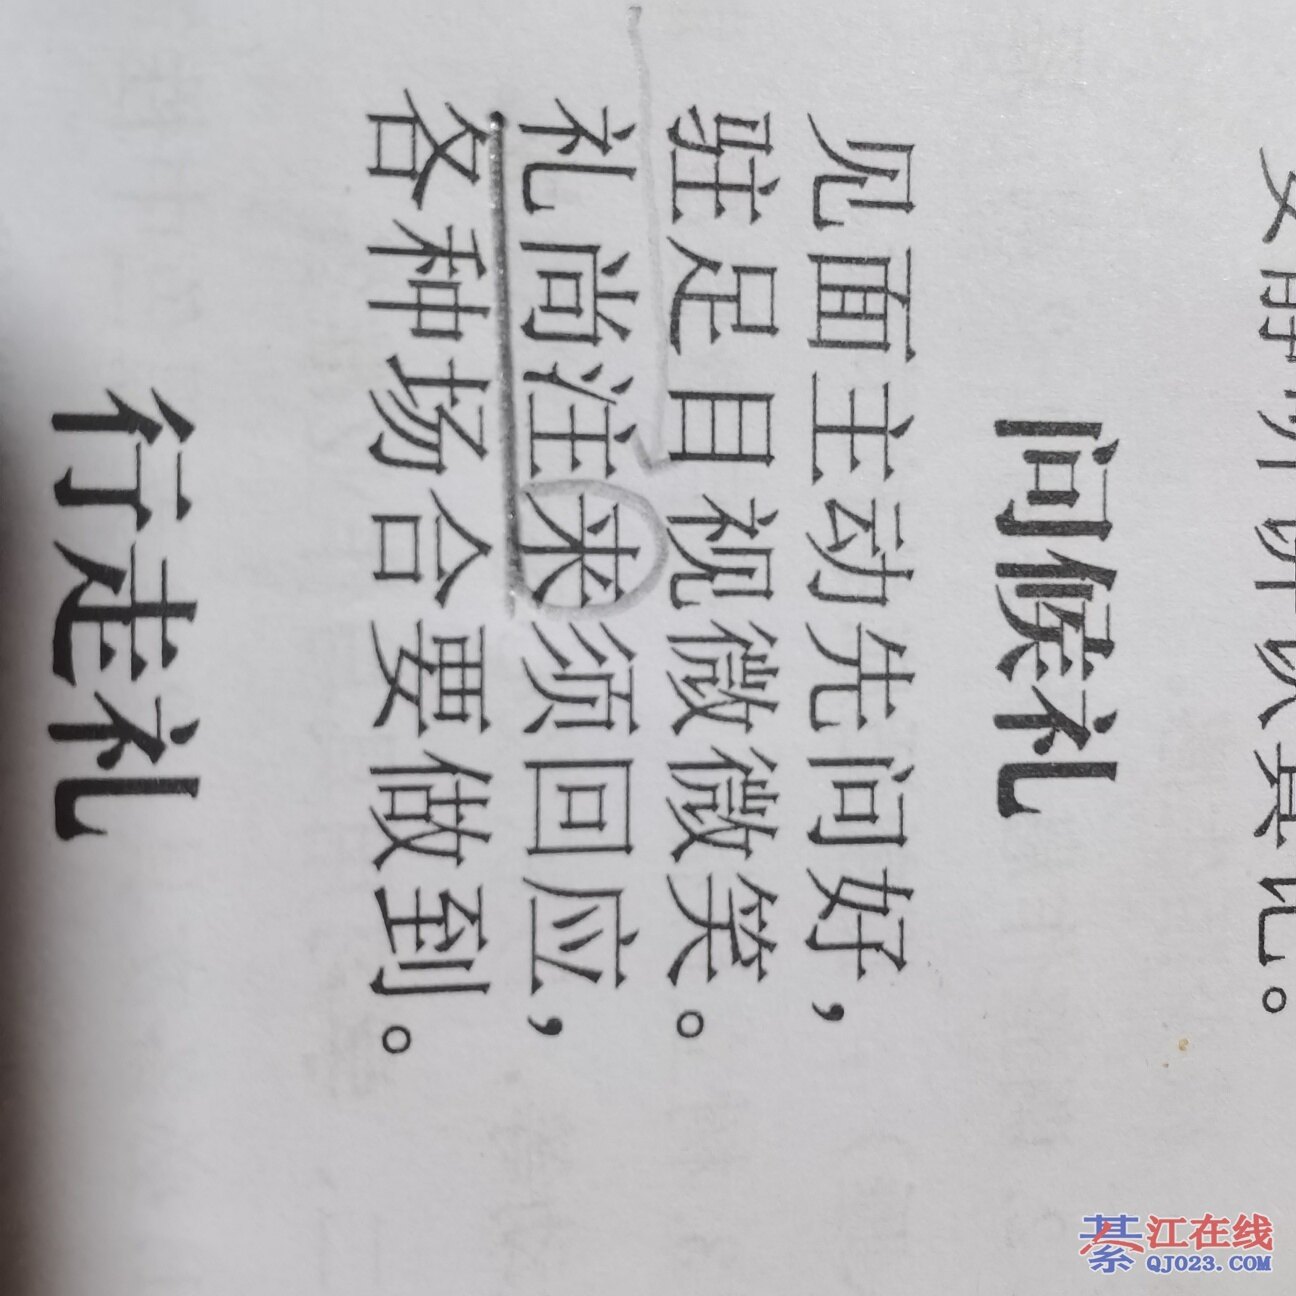 安静听讲认真记。
问候礼
见面主动先问好,
驻足目视微微笑。
礼尚注来须回应,
各种场合要做到。
行走礼
綦江在线
QJ023.COM